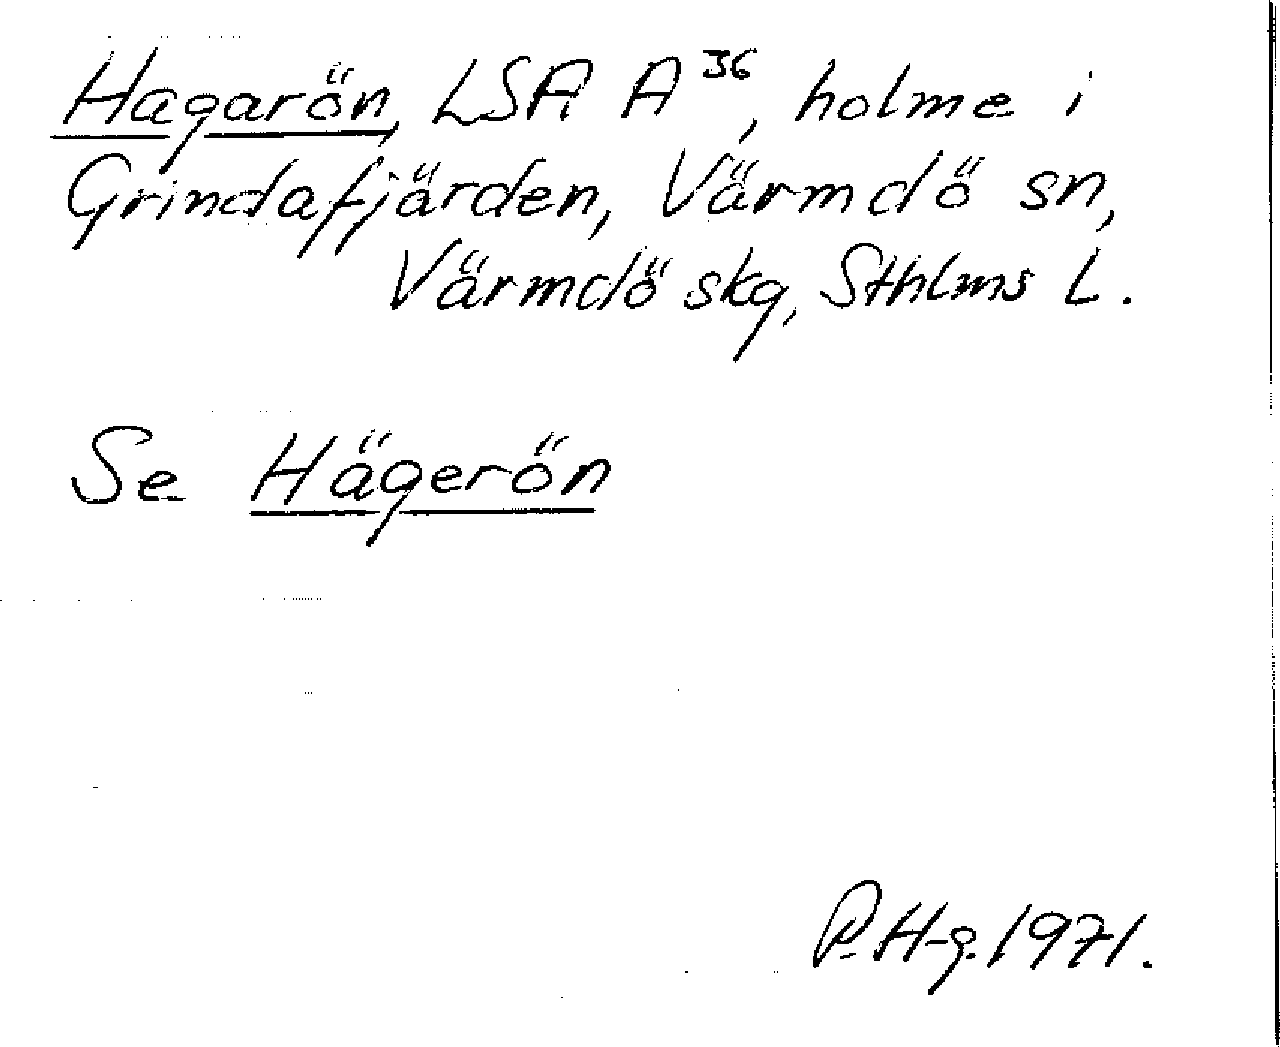 Hagarön, LSA A³⁶, holme i
Grindafjärden, Värmdö sn,
Värmdö skg, Sthlms L.
Se Hägerön
P. H-g. 1971.